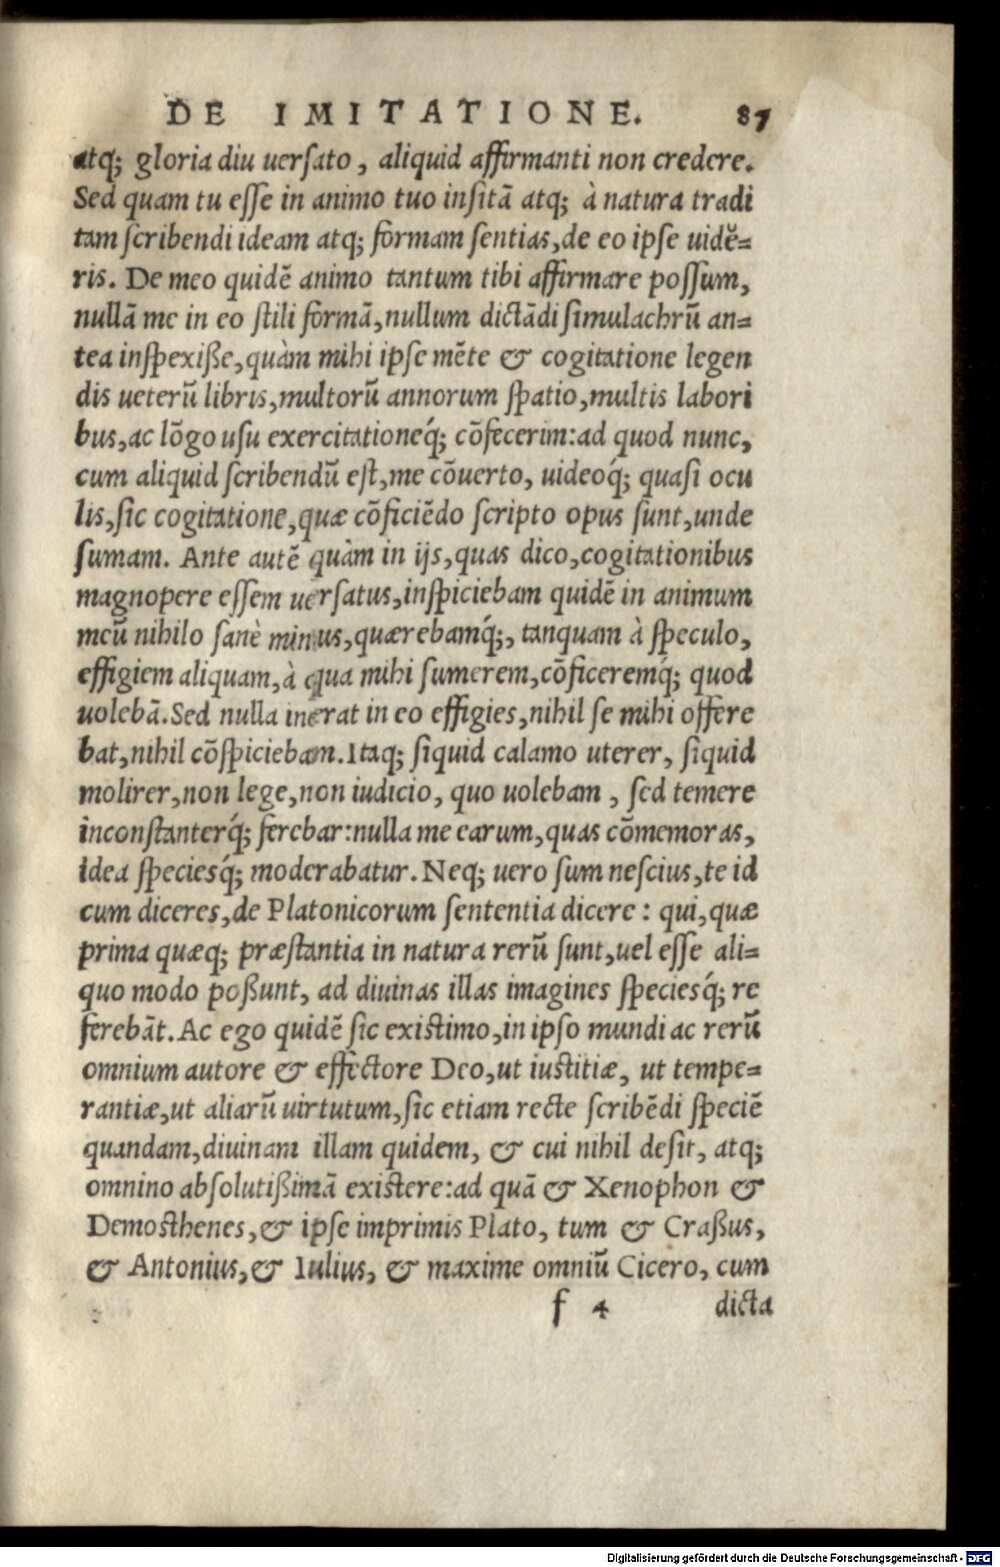 DE IMITATIONE. 87
atq; gloria diu uersato, aliquid affirmanti non credere.
Sed quam tu esse in animo tuo insitā atq; à natura tradi
tam scribendi ideam atq; formam sentias, de eo ipse uidē=
ris. De meo quidē animo tantum tibi affirmare possum,
nullā me in eo stili formā, nullum dictādi simulachrū an=
tea inspexiße, quàm mihi ipse mēte & cogitatione legen
dis ueterū libris, multorū annorum spatio, multis labori
bus, ac lōgo usu exercitationeq́; cōfecerim: ad quod nunc,
cum aliquid scribendū est, me cōuerto, uideoq́; quasi ocu
lis, sic cogitatione, quæ cōficiēdo scripto opus sunt, unde
sumam. Ante autē quàm in ijs, quas dico, cogitationibus
magnopere essem uersatus, inspiciebam quidē in animum
meū nihilo sanè minus, quærebamq́;, tanquam à speculo,
effigiem aliquam, à qua mihi sumerem, cōficeremq́; quod
uolebā. Sed nulla inerat in eo effigies, nihil se mihi offere
bat, nihil cōspiciebam. Itaq; siquid calamo uterer, siquid
molirer, non lege, non iudicio, quo uolebam, sed temere
inconstanterq́; ferebar: nulla me earum, quas cōmemoras,
idea speciesq́; moderabatur. Neq; uero sum nescius, te id
cum diceres, de Platonicorum sententia dicere: qui, quæ
prima quæq; præstantia in natura rerū sunt, uel esse ali=
quo modo poßunt, ad diuinas illas imagines speciesq́; re
ferebāt. Ac ego quidē sic existimo, in ipso mundi ac rerū
omnium autore & effectore Deo, ut iustitiæ, ut tempe=
rantiæ, ut aliarū uirtutum, sic etiam recte scribēdi speciē
quandam, diuinam illam quidem, & cui nihil desit, atq;
omnino absolutißimā existere: ad quā & Xenophon &
Demosthenes, & ipse imprimis Plato, tum & Craßus,
& Antonius, & Iulius, & maxime omniū Cicero, cum
f 4 dicta
Digitalisierung gefördert durch die Deutsche Forschungsgemeinschaft - DFG